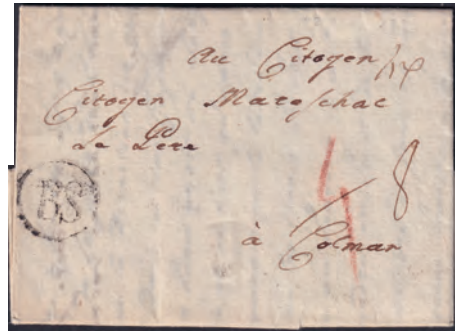 Au Citogen
Citogen Mareschal
Le Pere
BS
4 8
à Colmar